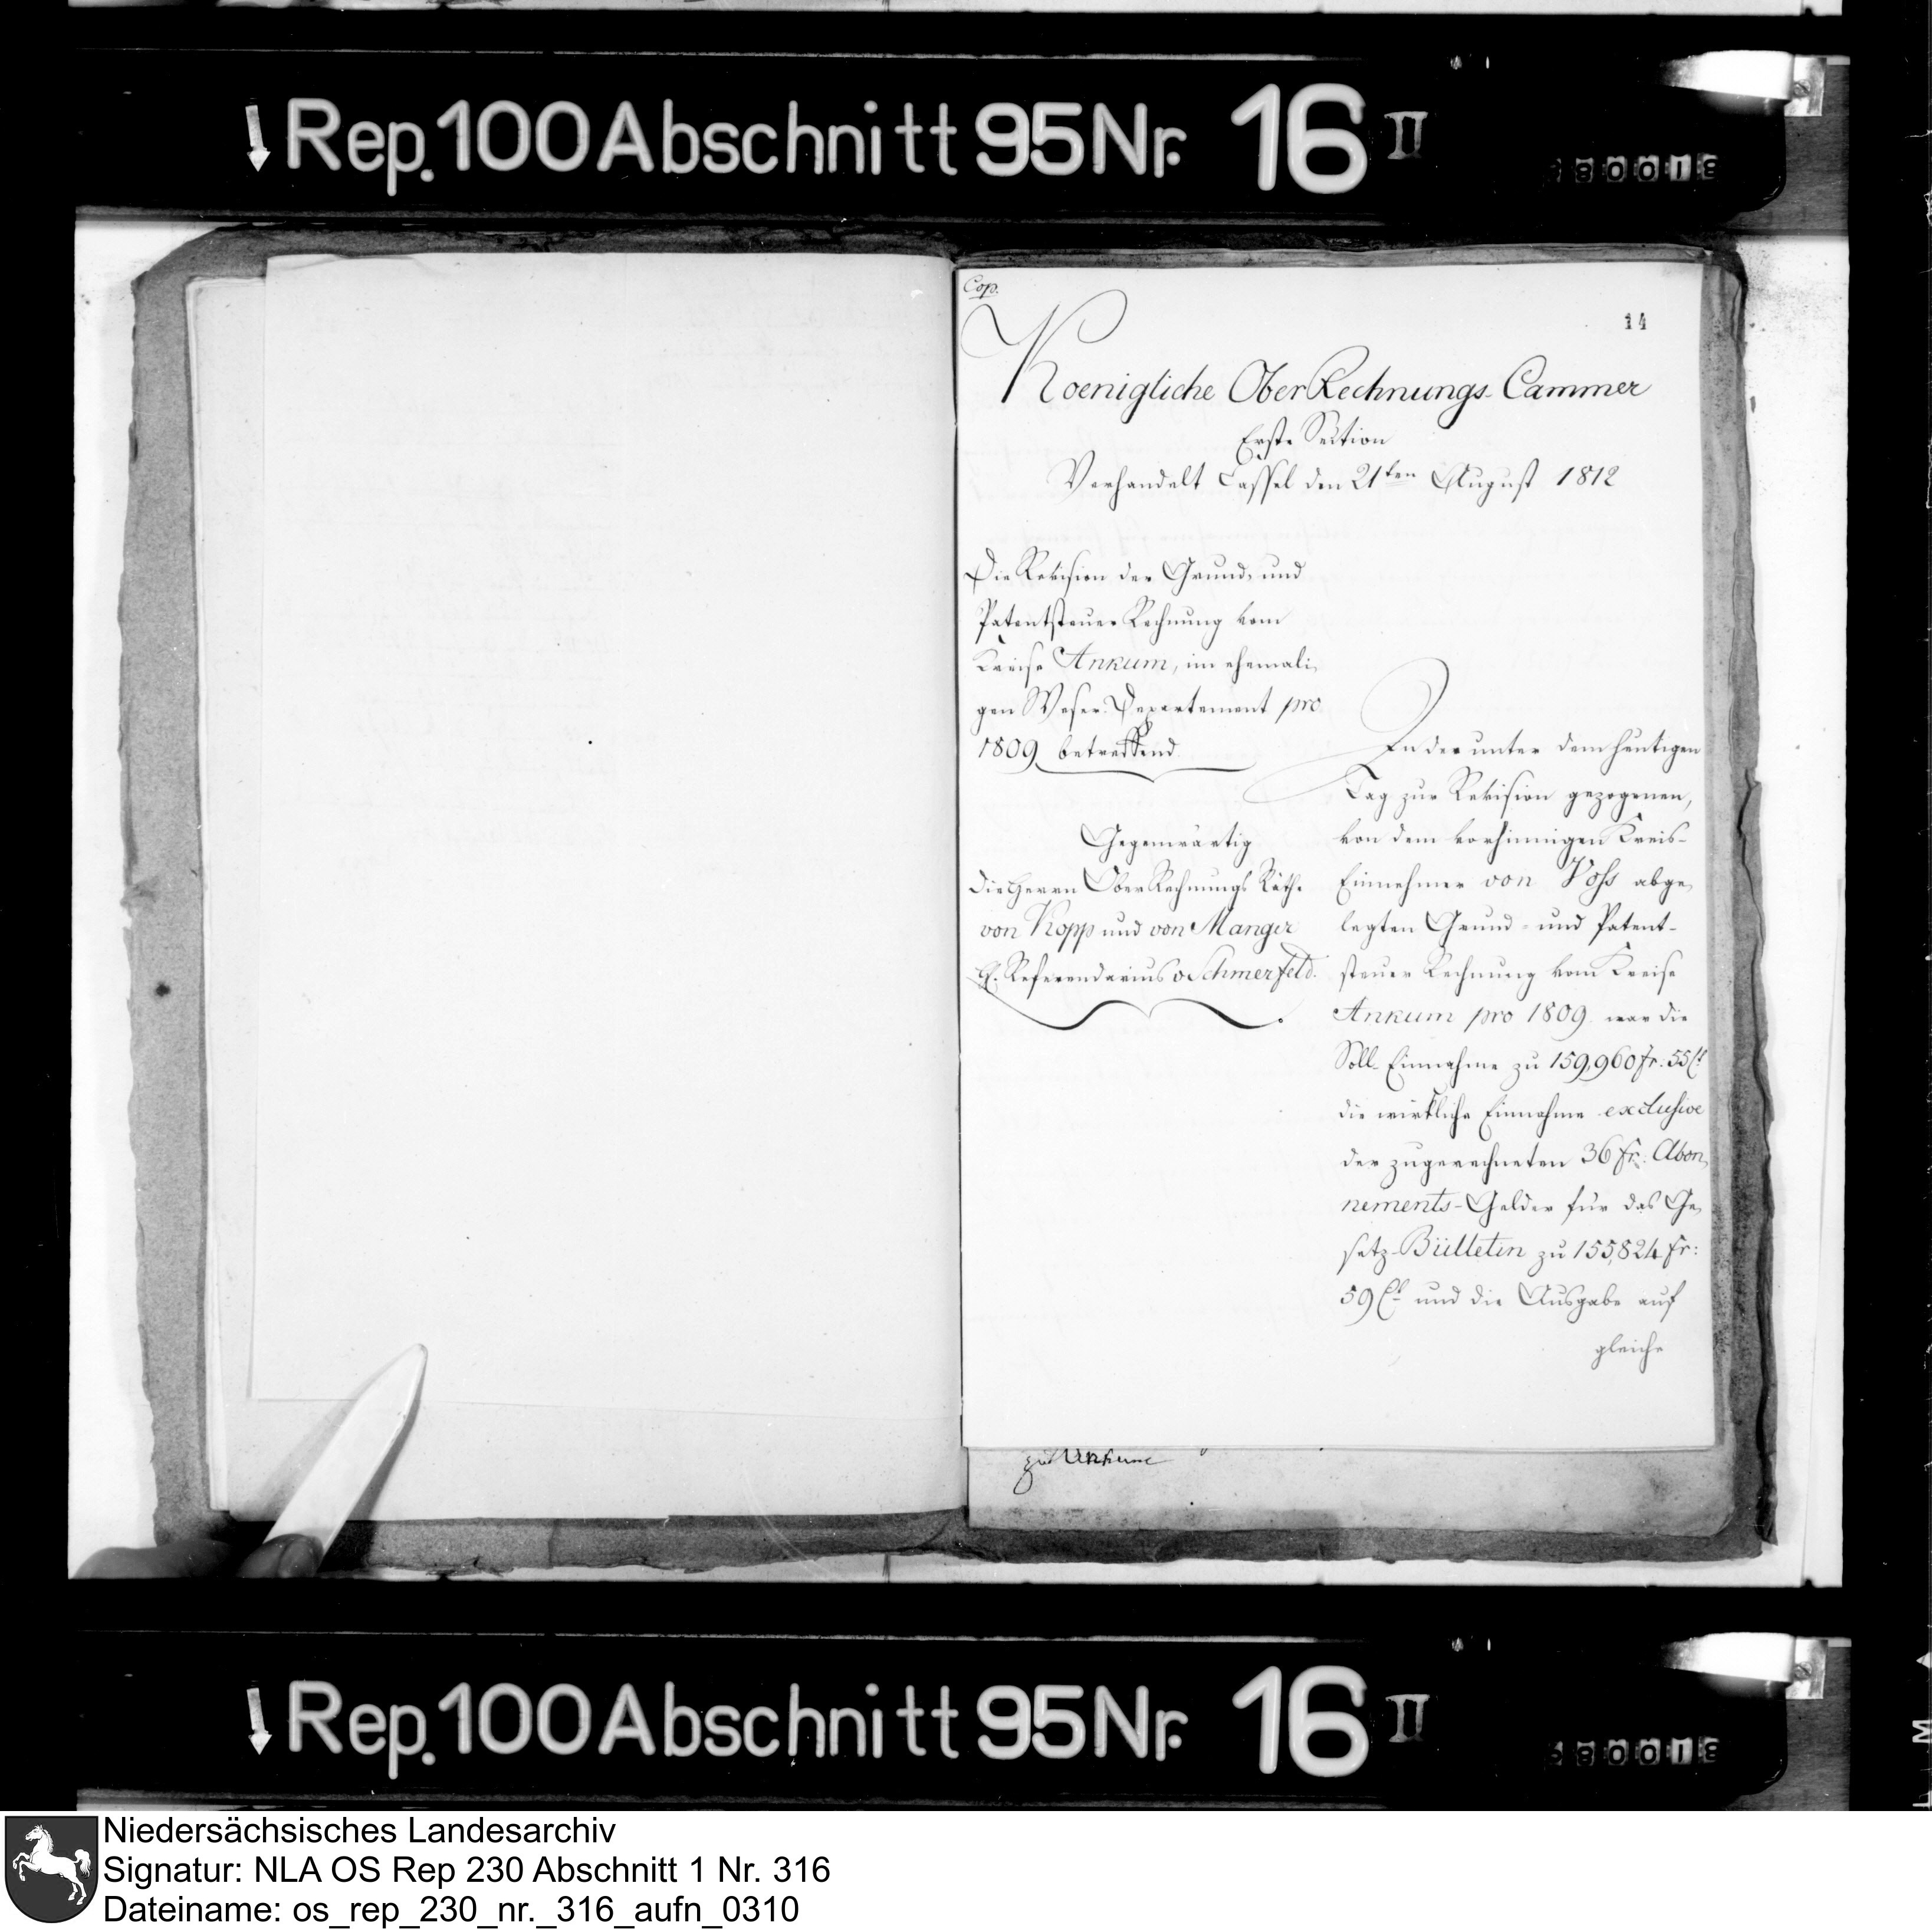 Rep. 100 Abschnitt 95 Nr. 16 II
Cop.
14
Koenigliche OberRechnungs-Cammer
Erste Section
Verhandelt Cassel den 21ten August 1812
Die Revision der Grund- und
Patentsteuer Rechnung vom
Kreise Ankum, im ehemali-
gen Weser-Departement pro
1809 betreffend.
Gegenwärtig
Die Herrn OberRechnungs Räthe
von Kopp und von Manger
H. Referendarius v Schmerfeld.
In der unter dem heutigen
Tag zur Revision gezogenen,
von dem vorhinnigen Kreis-
Einnehmer von Voss abge-
legten Grund- und Patent-
steuer Rechnung vom Kreise
Ankum pro 1809. war die
Soll-Einnahme zu 159,960 fr. 55 Ct
die wirkliche Einnahme exclusive
der zugerechneten 36 fr: Abon-
nements-Gelder für das Ge-
setz-Bülletin zu 155,824 fr:
59 Ct und die Ausgabe auf
gleiche
zu Ankum
Rep. 100 Abschnitt 95 Nr. 16 II
Niedersächsisches Landesarchiv
Signatur: NLA OS Rep 230 Abschnitt 1 Nr. 316
Dateiname: os_rep_230_nr._316_aufn_0310